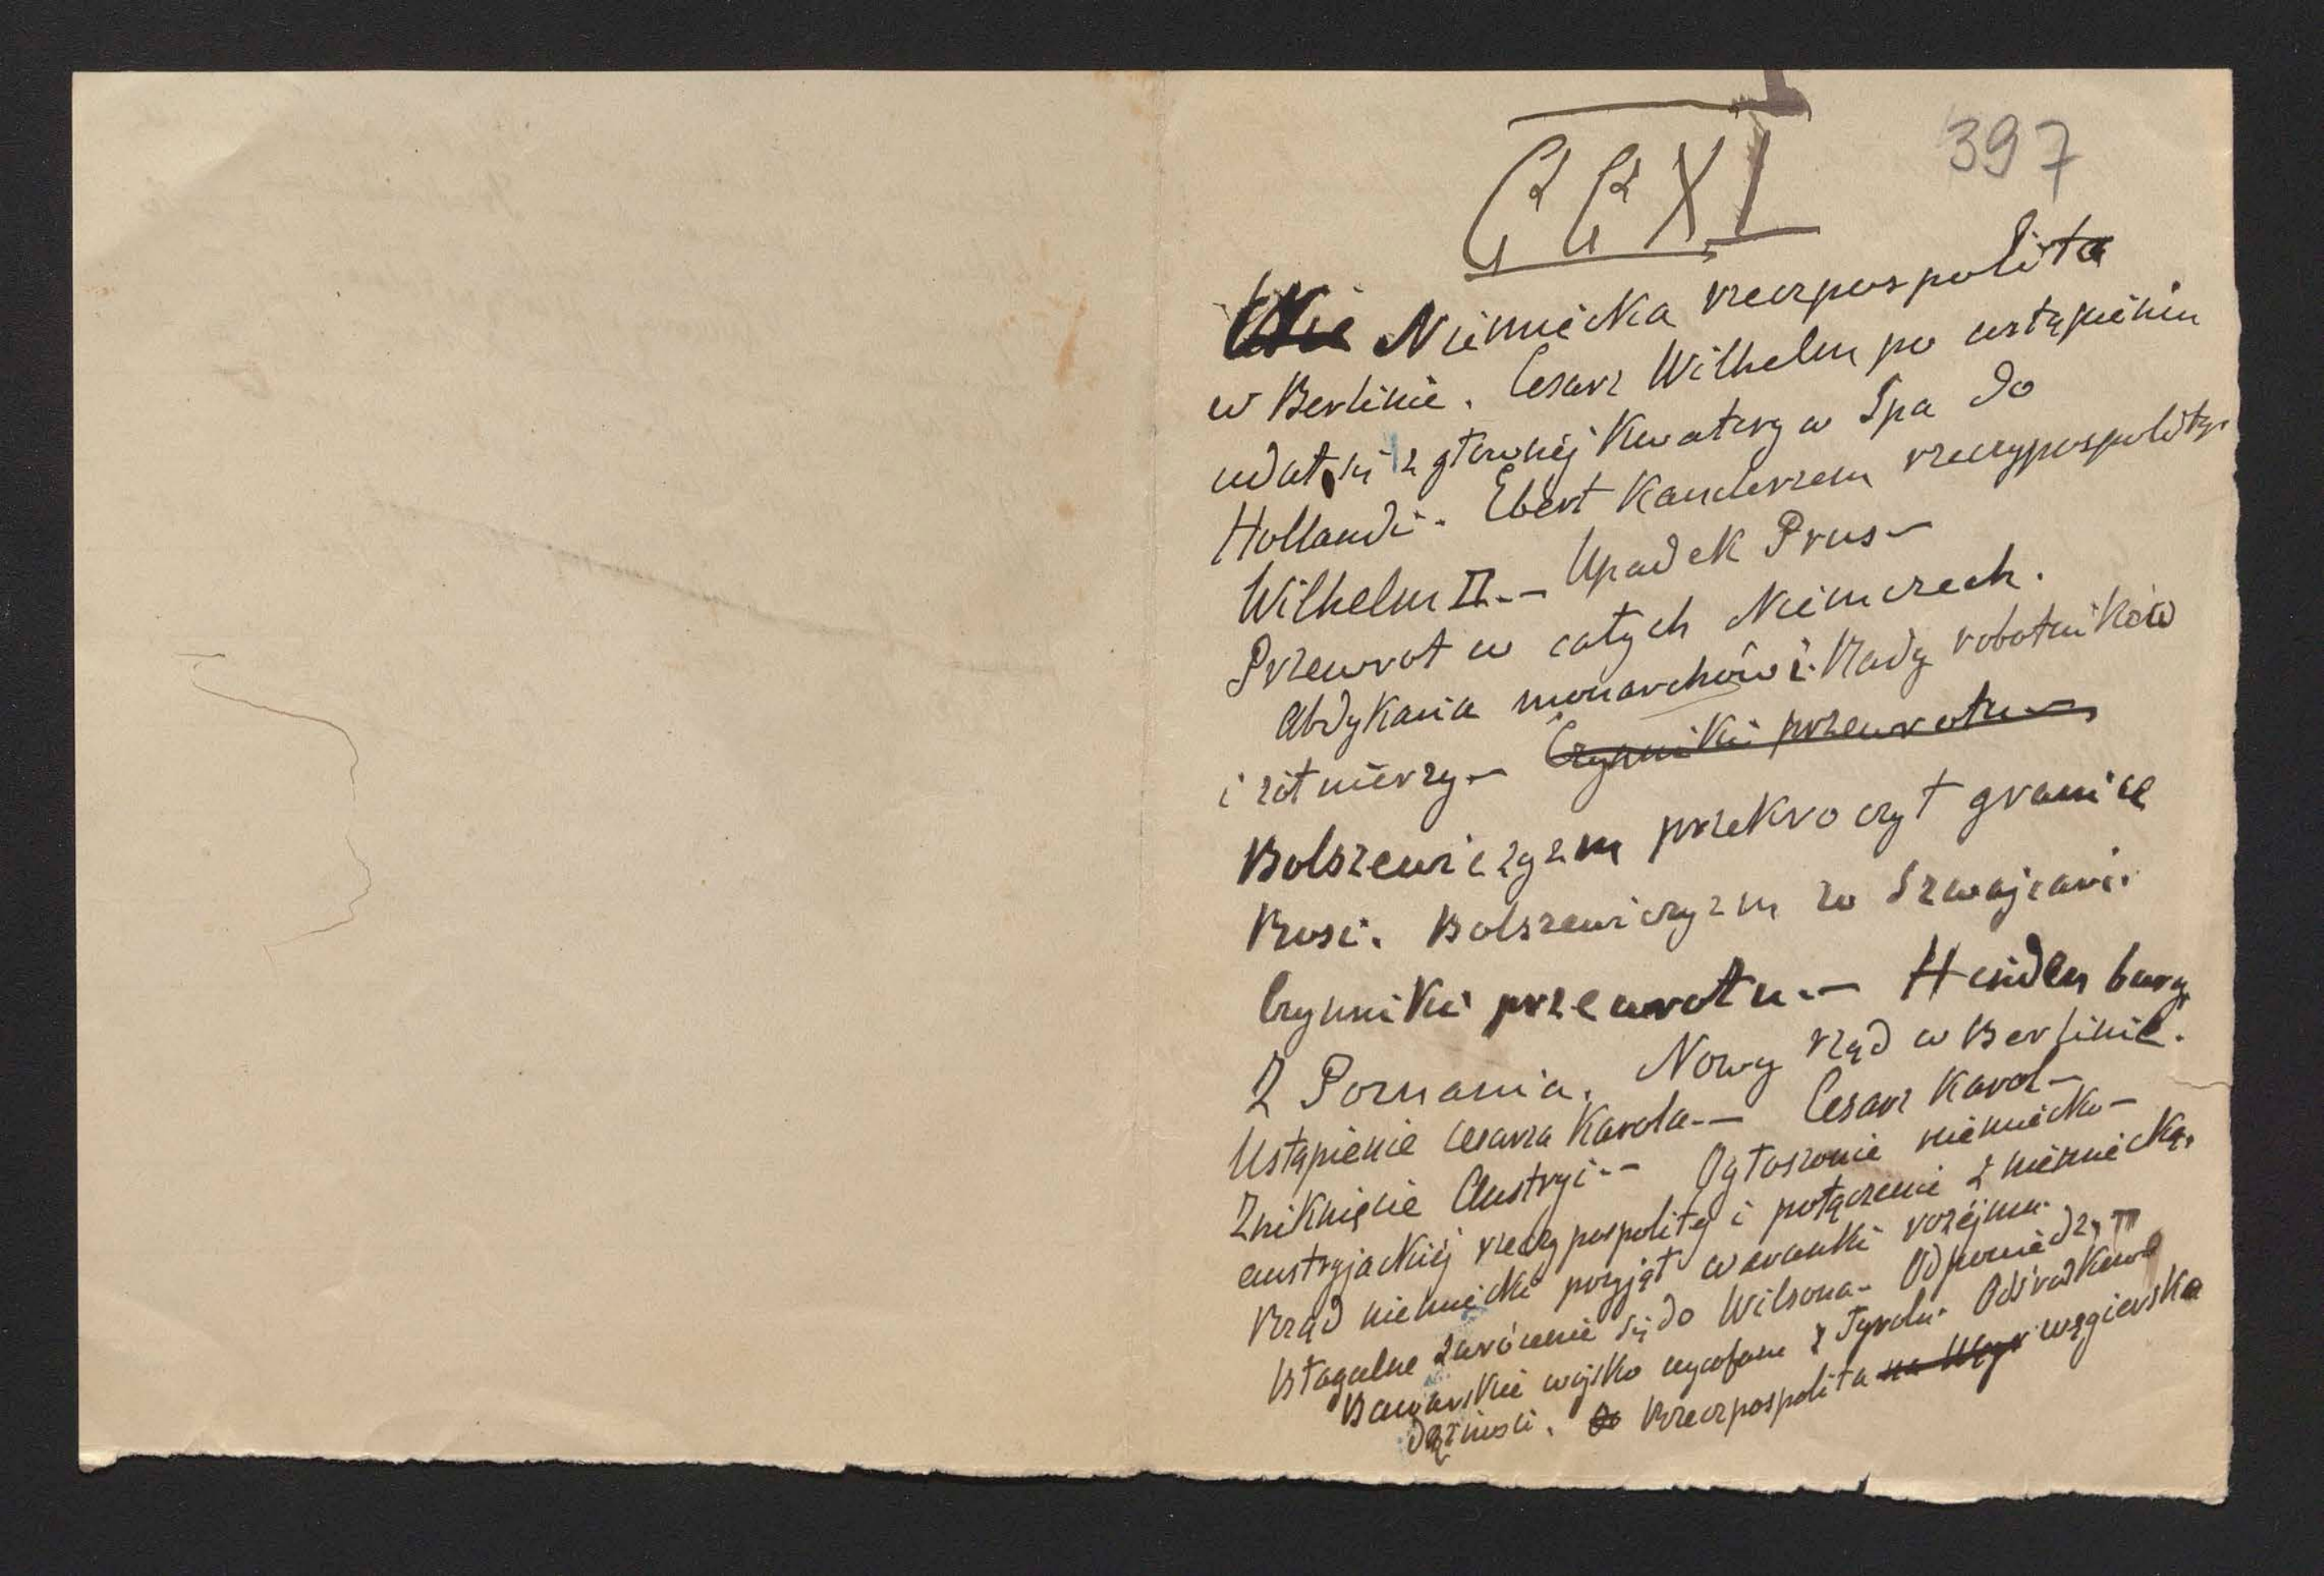 397
CCXI
Niemiecka rzeczpospolita
w Berlinie. Cesarz Wilhelm po ustąpieniu
udał się z głównej Kwatery w Spa do
Hollandi. Ebert Kanclerzem rzeczypospolitej.
Wilhelm II.— Upadek Prus—
Przewrot w całych Niemczech.
Abdykacia monarchów i Rady robotników
i żołnierzy— Czynniki przewrotu—
Bolszewiczyzm przekroczył granice
Rosi. Bolszewiczyzm w Szwajcari.
Czynniki przewrotu.— Hindenburg
Z Poznania. Nowy rząd w Berlinie.
Ustąpienie cesarza Karola.— Cesarz Karol—
Zniknięcie Austryi.— Ogłoszenie niemiecko—
austryjackiej rzeczypospolitej i połączenie z niemiecką.
Rząd niemiecki przyjął warunki rozejmu.
Błagalne zwrócenie się do Wilsona. Odpowiedz.
Bawarskie wojsko wycofane z Tyrolu. Odśrodkowe
dążności. Rzeczpospolita na Węgr węgierska